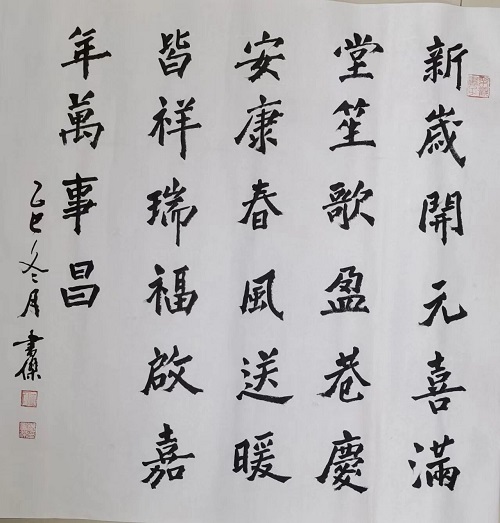 新歲開元喜滿
堂笙歌盈巷慶
安康春風送暖
皆祥瑞福啟嘉
年萬事昌
乙巳冬月書傑